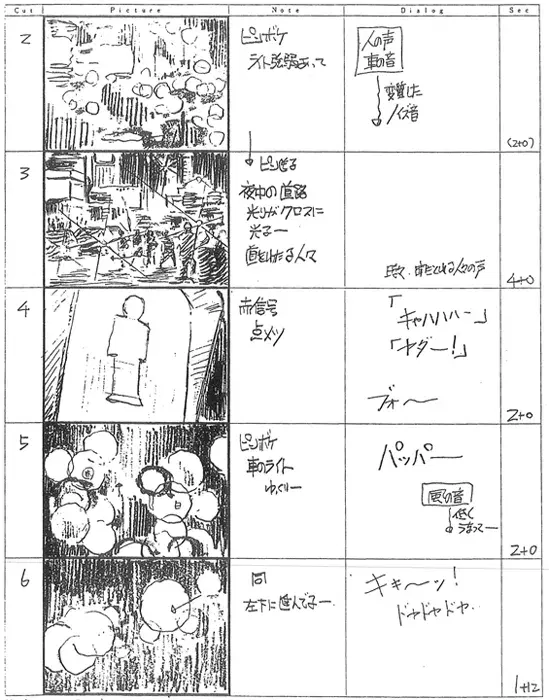 Cut Picture Note Dialog Sec
2
ピンボケ
ライト強弱あって
人の声
車の音
変質した
ノイズ音
(2+0)
3
ピン送る
夜中の道路
光りがクロスに
光るー
道をわたる人々
人々の声
4+0
4
赤信号
点メツ
「キャハハハー」
「ヤダー!」
ブォ〜
2+0
5
ピンボケ
車のライト
ゆっくりー
パッパー
低く
2+0
6
同
左下に進んでるー
キキ〜ッ!
ドヤドヤドヤ
1+12